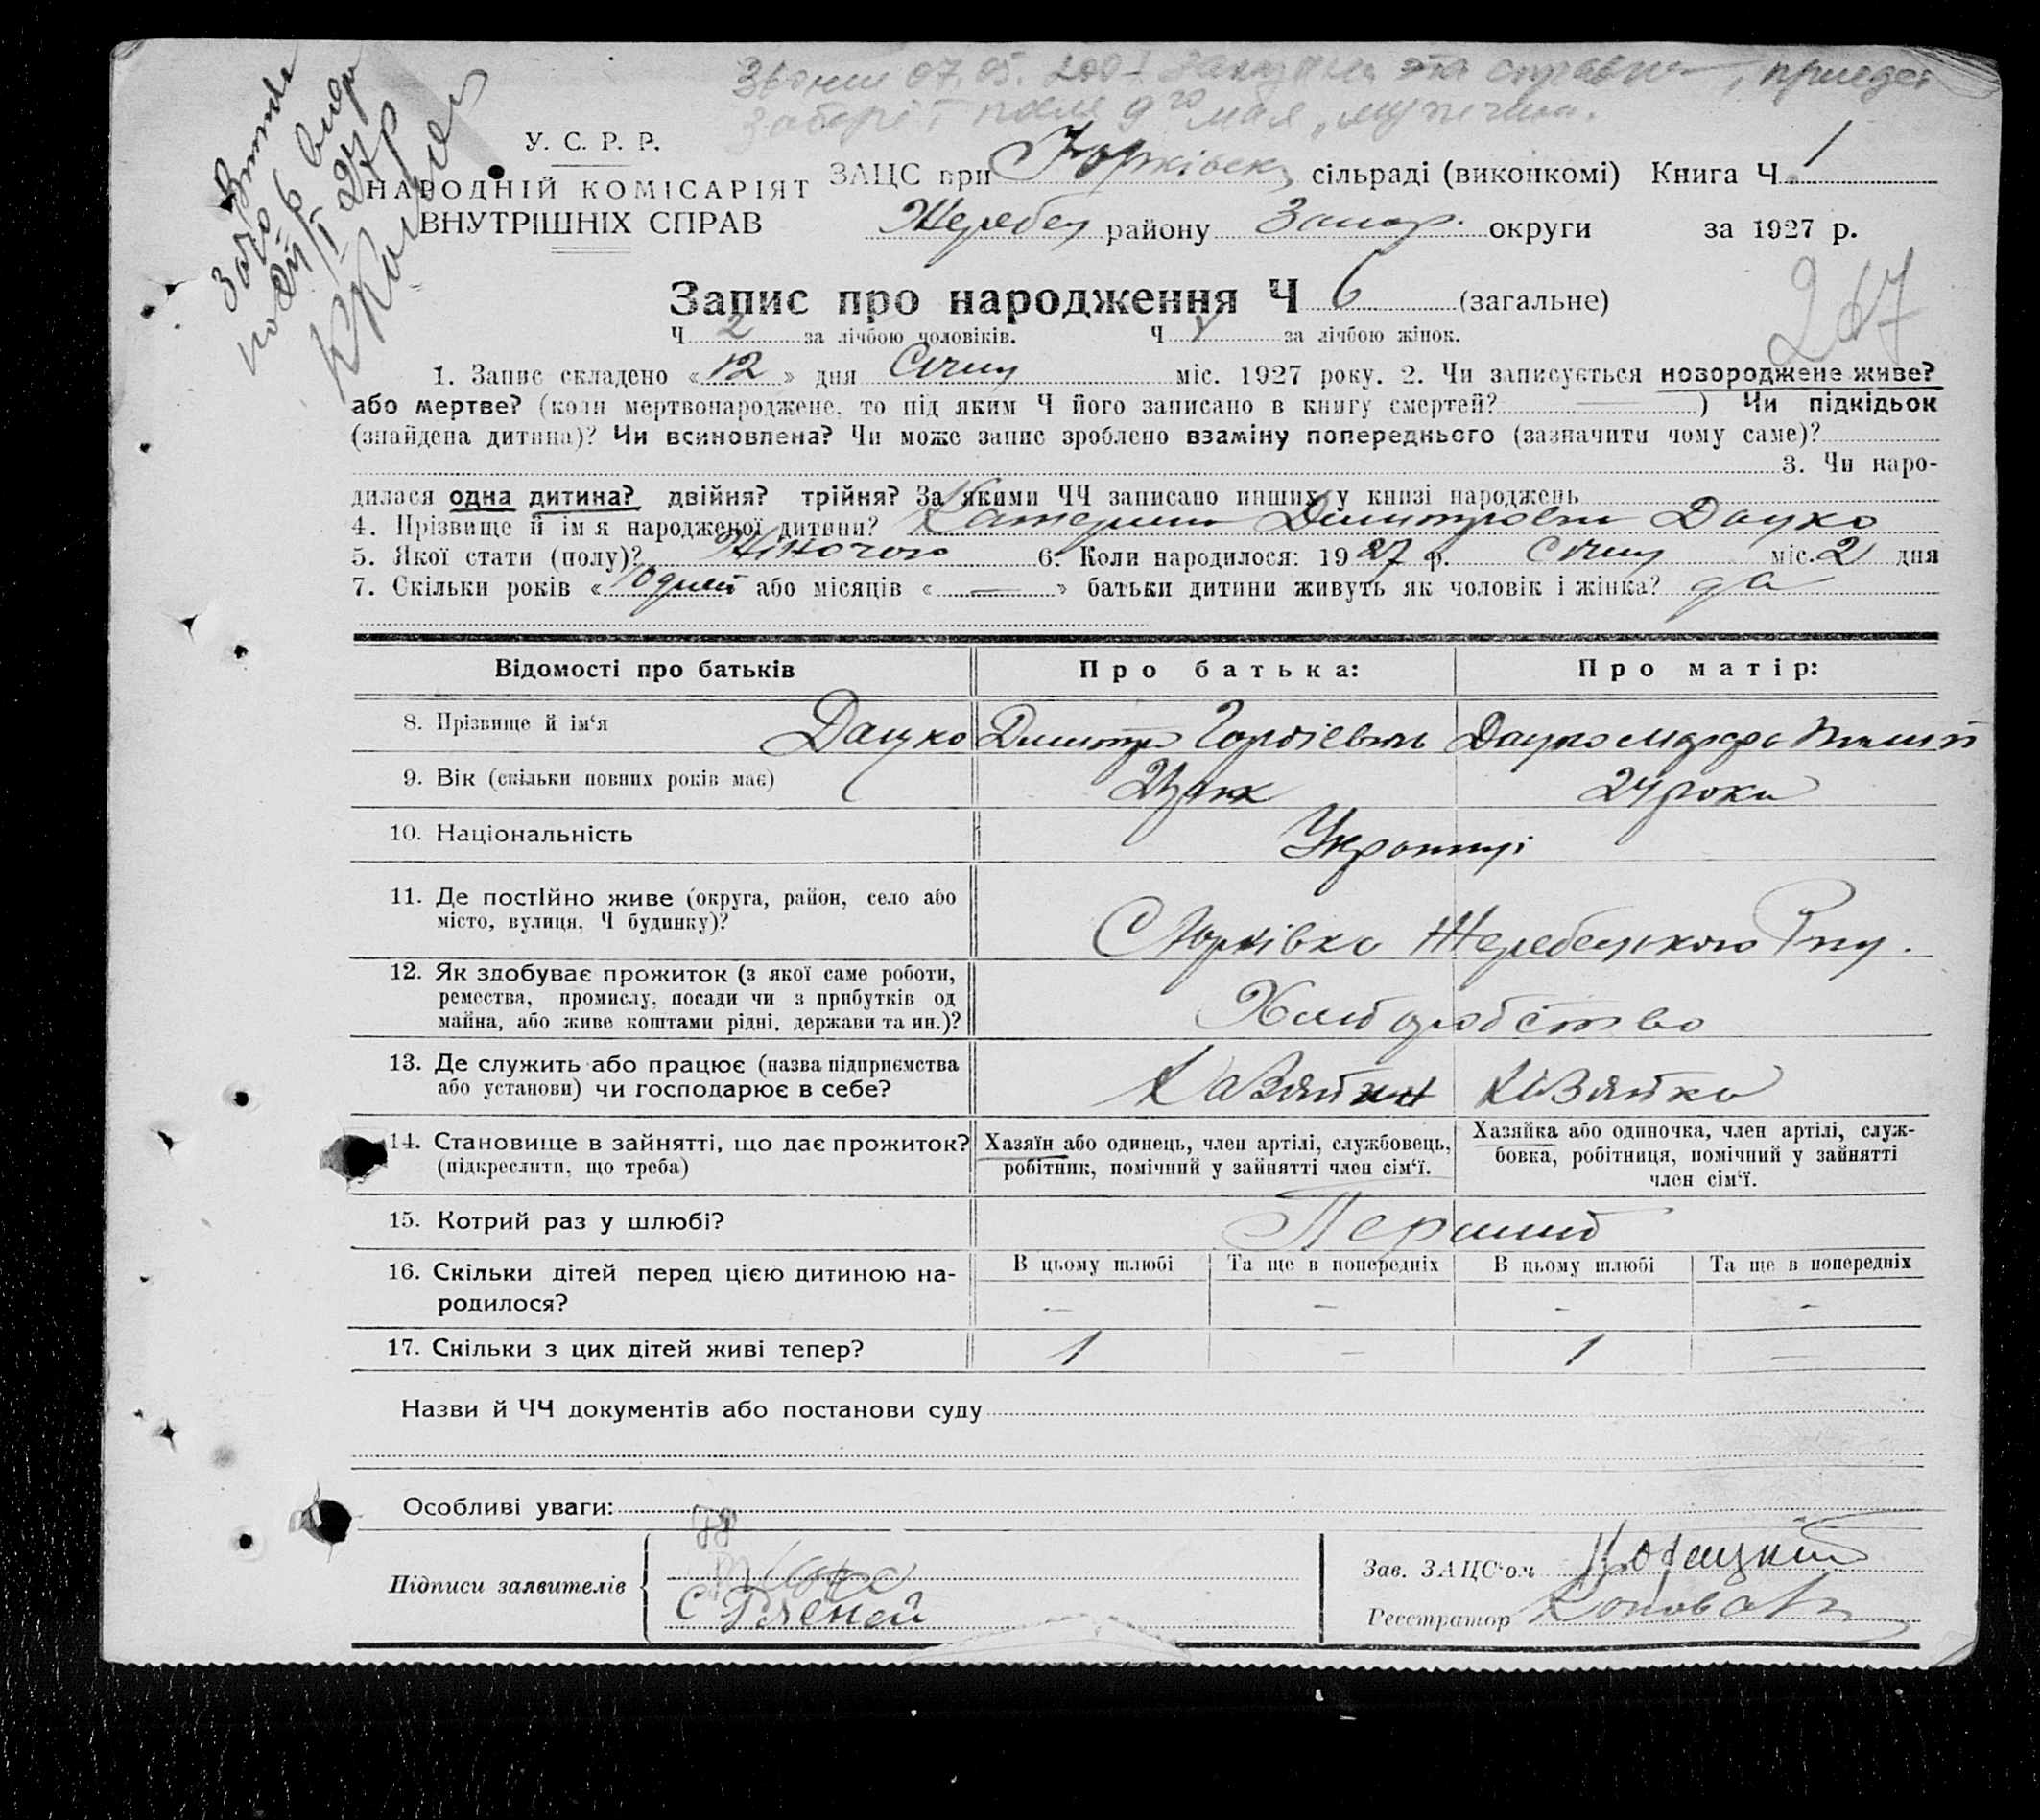 У. С. Р. Р.
НАРОДНІЙ КОМІСАРІЯТ
ВНУТРІШНІХ СПРАВ
ЗАЦС при Юрківськ сільраді (виконкомі) Книга Ч. 1
Жеребец району Запор. округи за 1927 р.
Запис про народження Ч 6 (загальне)
267
Ч 2 за лічбою чоловіків. Ч за лічбою жінок.
1. Запис складено «12» дня Січня міс. 1927 року. 2. Чи записується новороджене живе?
або мертве? (коли мертвонароджене, то під яким Ч його записано в книгу смертей? —) Чи підкідьок
(знайдена дитина)? Чи всиновлена? Чи може запис зроблено взаміну попереднього (зазначити чому саме)?
3. Чи наро-
дилася одна дитина? двійня? трійня? За якими ЧЧ записано инших у книзі народжень
4. Прізвище й імя народженої дитини? Катерина Димитровна Дацко
5. Якої стати (полу)? Жіночого 6. Коли народилося: 1927 р. Січня міс. 2 дня
7. Скільки років «10 дней або місяців « — » батьки дитини живуть як чоловік і жінка? да
Відомості про батьків Про батька: Про матір:
8. Прізвище й ім‘я Дацко Димитри Гордіевич Дацко
9. Вік (скільки повних років має) 24 роки
10. Національність Украинці
11. Де постійно живе (округа, район, село або
місто, вулиця, Ч будинку)?
С Юрківка Жеребецького Р-ну.
12. Як здобуває прожиток (з якої саме роботи,
ремества, промислу, посади чи з прибутків од
майна, або живе коштами рідні, держави та ин.)?
Хлиборобство
13. Де служить або працює (назва підприємства
або установи) чи господарює в себе?
Хазяйка
14. Становище в зайнятті, що дає прожиток?
(підкреслити, що треба)
Хазяїн або одинець, член артілі, службовець,
робітник, помічний у зайнятті член сім‘ї.
Хазяйка або одиночка, член артілі, служ-
бовка, робітниця, помічний у зайнятті
член сім‘ї.
15. Котрий раз у шлюбі? Перший
16. Скільки дітей перед цією дитиною на-
родилося?
В цьому шлюбі Та ще в попередніх В цьому шлюбі Та ще в попередніх
— — — —
17. Скільки з цих дітей живі тепер? 1 — 1 —
Назви й ЧЧ документів або постанови суду
Особливі уваги:
Підписи заявителів
Зав. ЗАЦС‘ом
Реєстратор